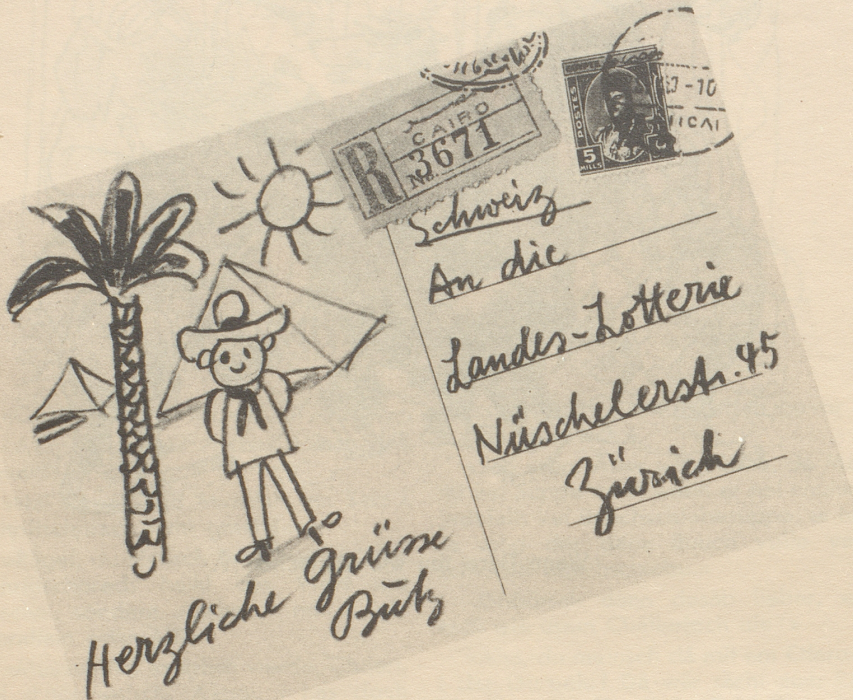 CAIRO
R No. 3671
POSTES
5
MILLS
-10
Schweiz
An die
Landes-Lotterie
Nüschelerstr. 45
Zürich
Herzliche Grüsse
Butz